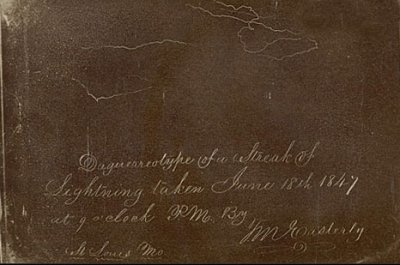 Daguerreotype of a Streak of
Lightning taken June 18th 1847
at 9 o'clock P.M. By
T M Easterly
St Louis Mo.